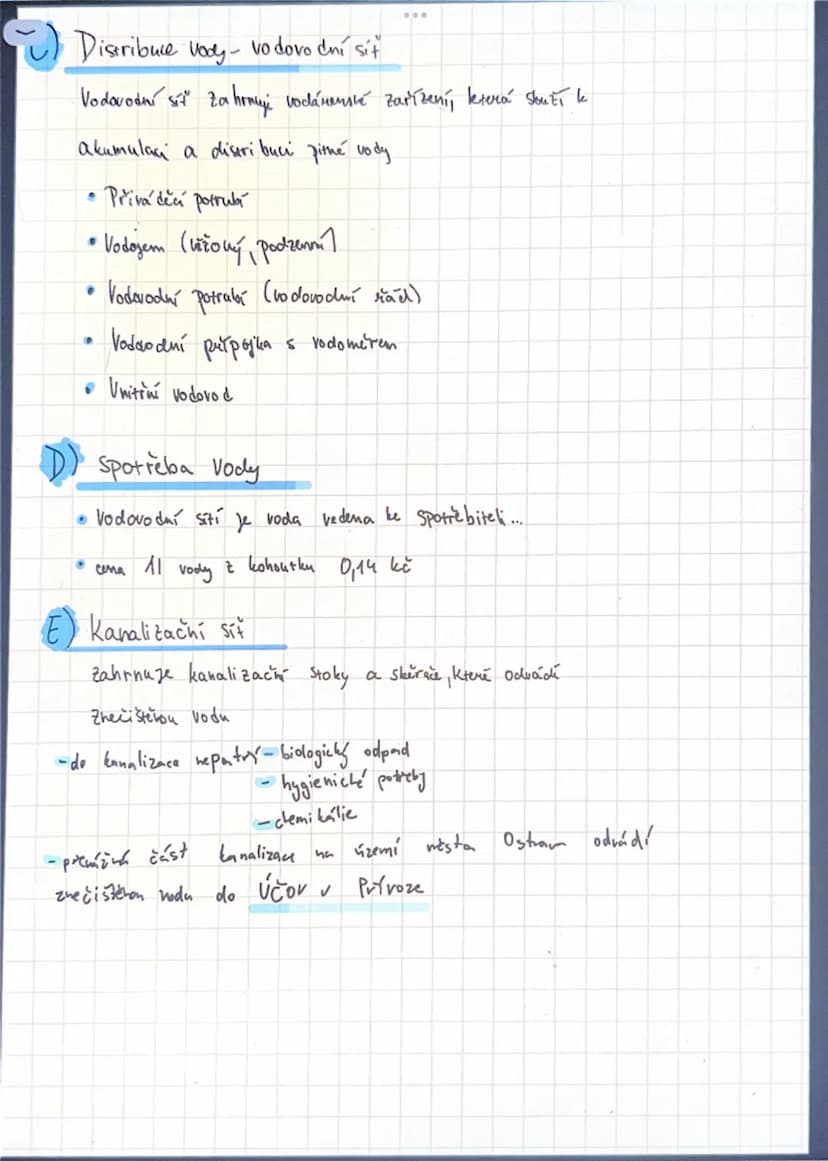 C) Distribuce vody - vodovodní síť
Vodovodní síť zahrnuje vodárenské zařízení, která slouží k
akumulaci a distribuci pitné vody
• Přiváděcí potrubí
• Vodojem (věžový, podzemní)
• Vodovodní potrubí (vodovodní řád)
• Vodovodní přípojka s vodoměrem
• Vnitřní vodovod
D) Spotřeba vody
• Vodovodní sítí je voda vedena ke spotřebiteli...
• cena 1l vody z kohoutku 0,14 kč
E) Kanalizační síť
zahrnuje kanalizační stoky a sběrače, které odvádí
znečištěnou vodu
- do kanalizace nepatří - biologický odpad
- hygienické potřeby
- chemikálie
- převážná část kanalizace na území města Ostravy odvádí
znečištěnou vodu do ÚČOV v Přívoze